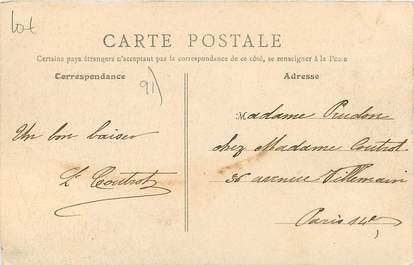 Lot
CARTE POSTALE
Certains pays étrangers n'acceptant pas la correspondance de ce côté, se renseigner à la Poste
Correspondance
Adresse
91)
Madame Prudon
chez Madame Coutrot
36 avenue Villemain
Paris 14e
Un bon baiser
L. Coutrot